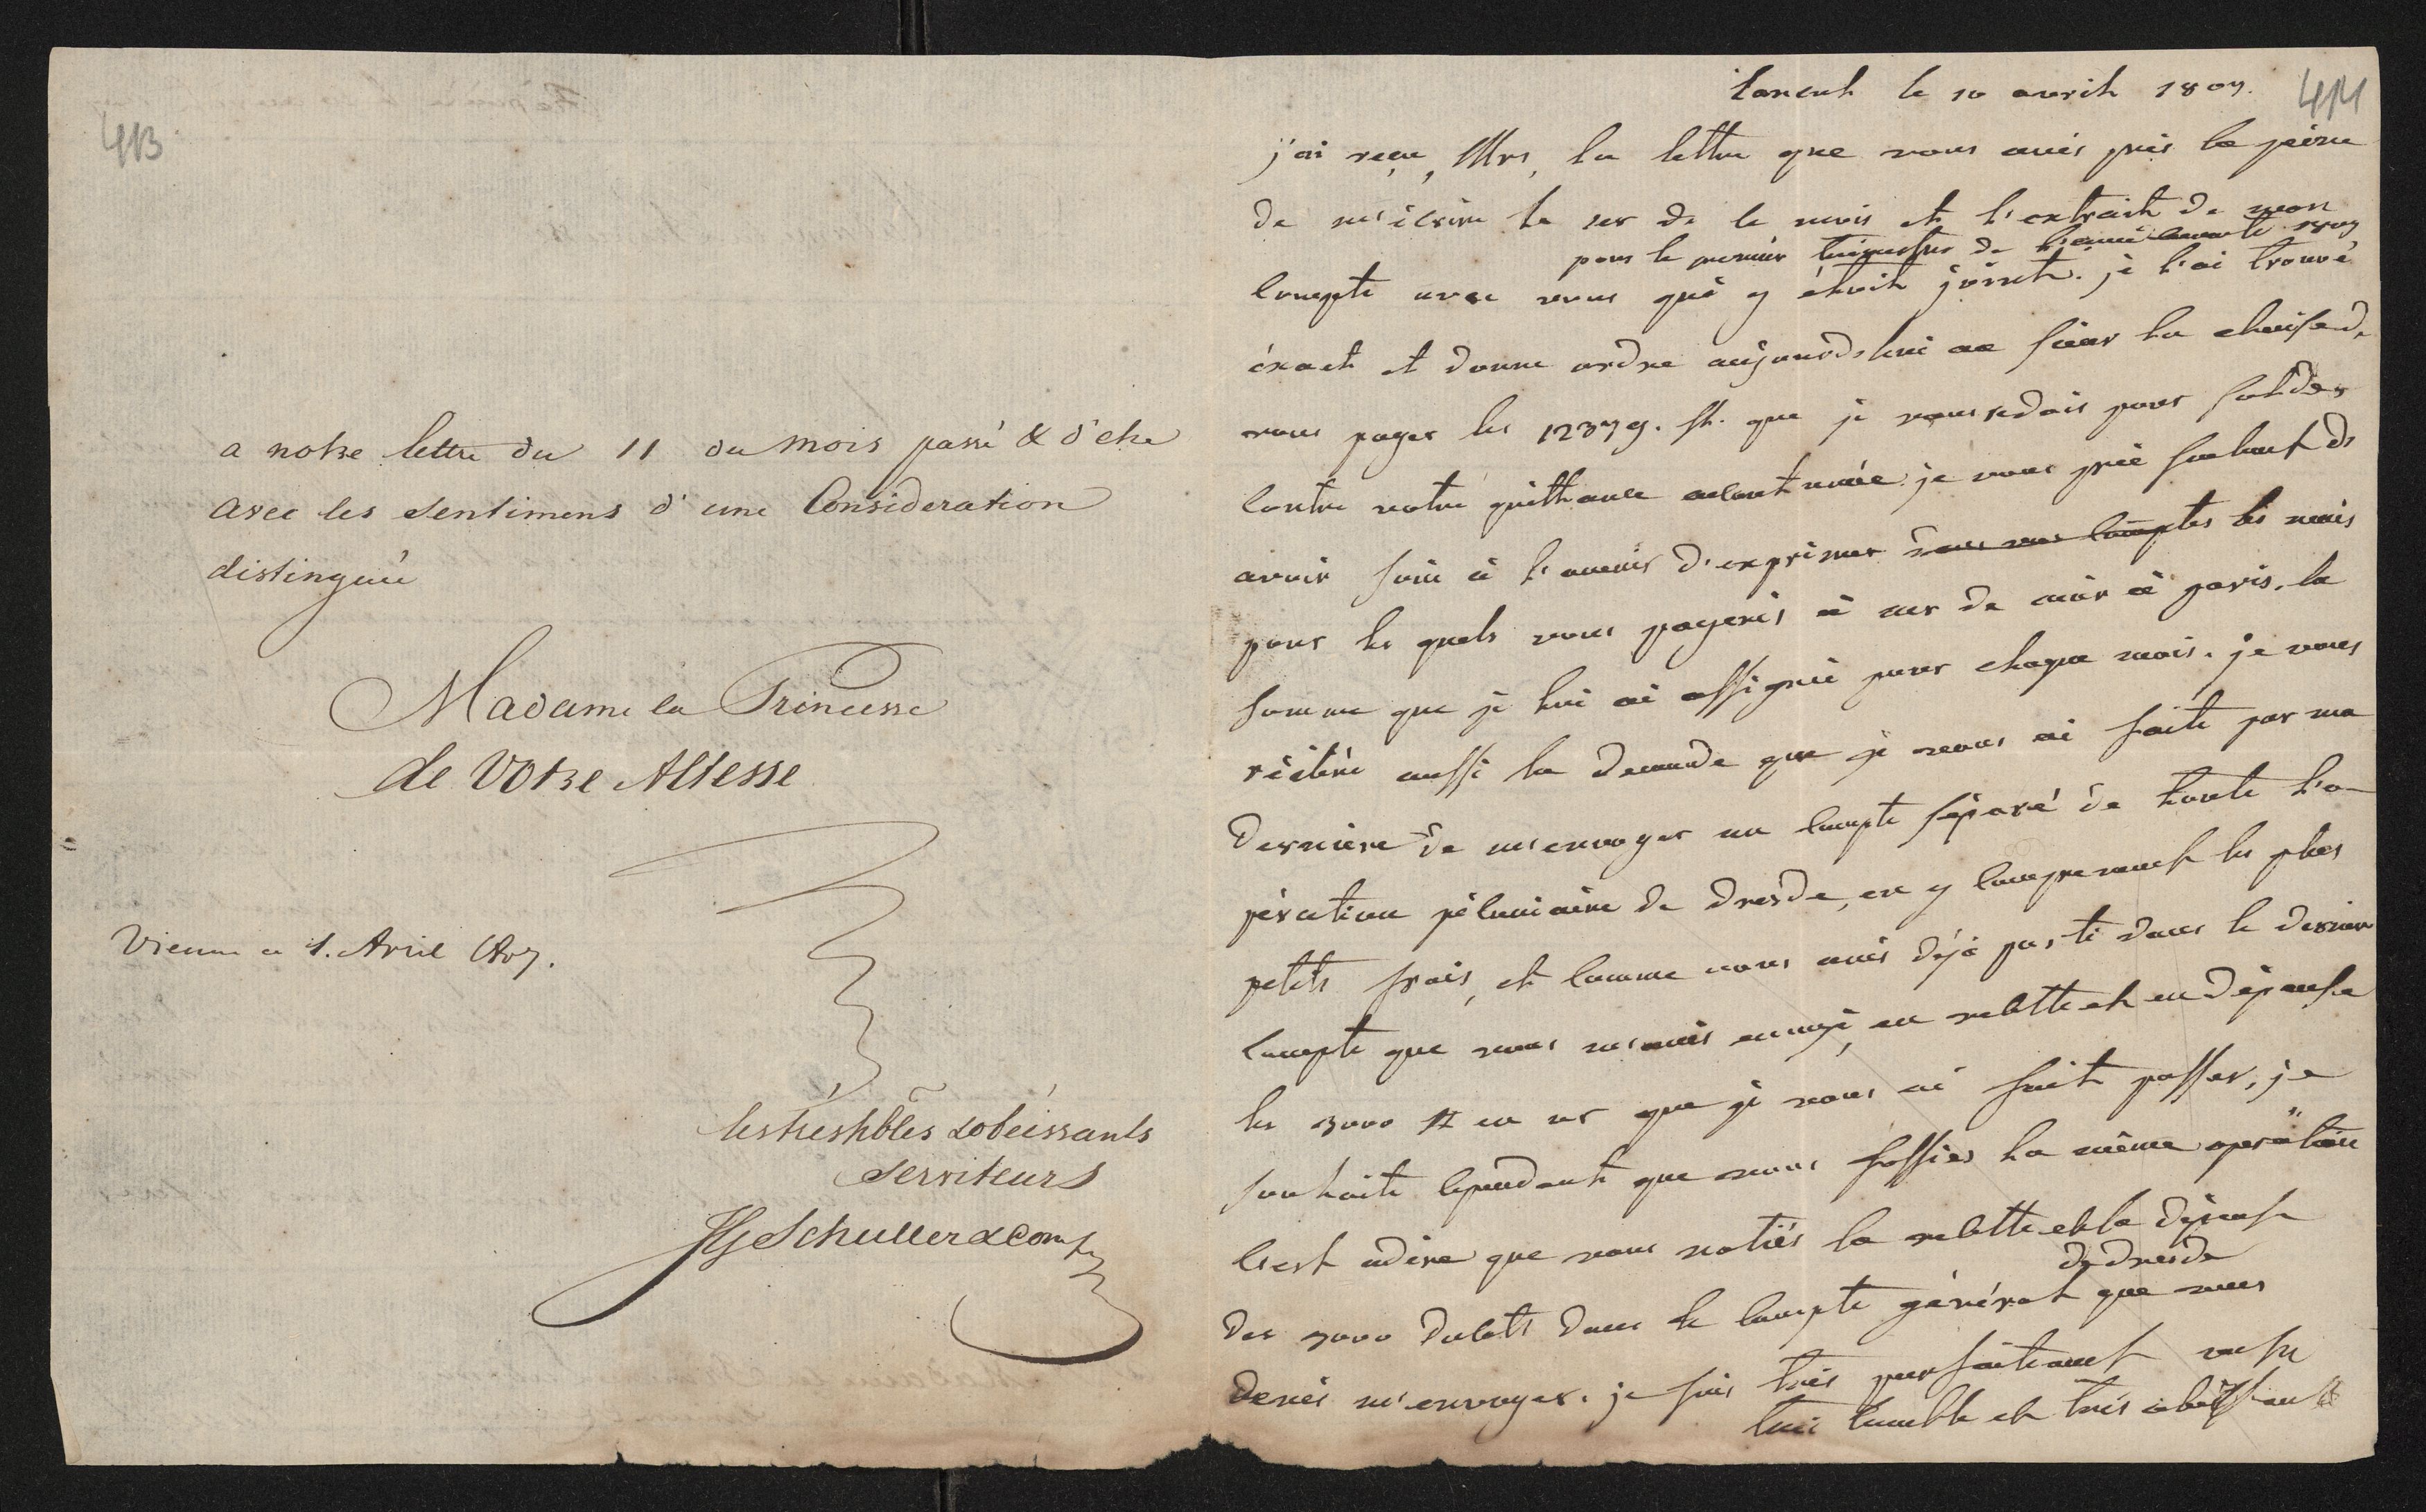 413.
a notre lettre du 11 du mois passé & d'etre
avec les sentimens d'une Consideration
distinguée
Madame la Princesse
de Votre Altesse
Vienne ce 1. Avril 1807.
les tres hbles & obeissants
serviteurs
JG Schuller & Comp
414
Lancut le 10 avril 1807.
j'ai reçu, Mrs, la lettre que vous avés pris la peine
de m'écrire le 1er de ce mois et l'extrait de mon
pour le premier trimestre de 1807
compte avec vous qui y étoit joint. je l'ai trouvé
éxact et donne ordre aujourd'hui au sieur la chaise de
vous payer les 12379. fl. que je vous redois pour solder
contre votre quittance accoutumée. je vous prie seulement de
avoir soin à l'avenir d'exprimer dans vos comptes les mois
pour les quels vous payerés à mr de mir à paris, la
somme que je lui ai assignée pour chaque mois. je vous
réitère aussi la demande que je vous ai faite par ma
dernière de m'envoyer un compte séparé de toute l'o-
pération pécuniaire de dresde, en y comprenant les plus
petits frais, et comme vous avés déjà porté dans le dernier
compte que vous m'avés envoyé, en recette et en dépense
les 3000 # en or que je vous ai fait passer, je
souhaite cependant que vous fassiés la même opération
c'est adire que vous notiés la recette et la dépense
de dresde
des 3000 ducats dans le compte général que vous
devés m'envoyer. je suis très parfaitement votre
très humble et très obéissante